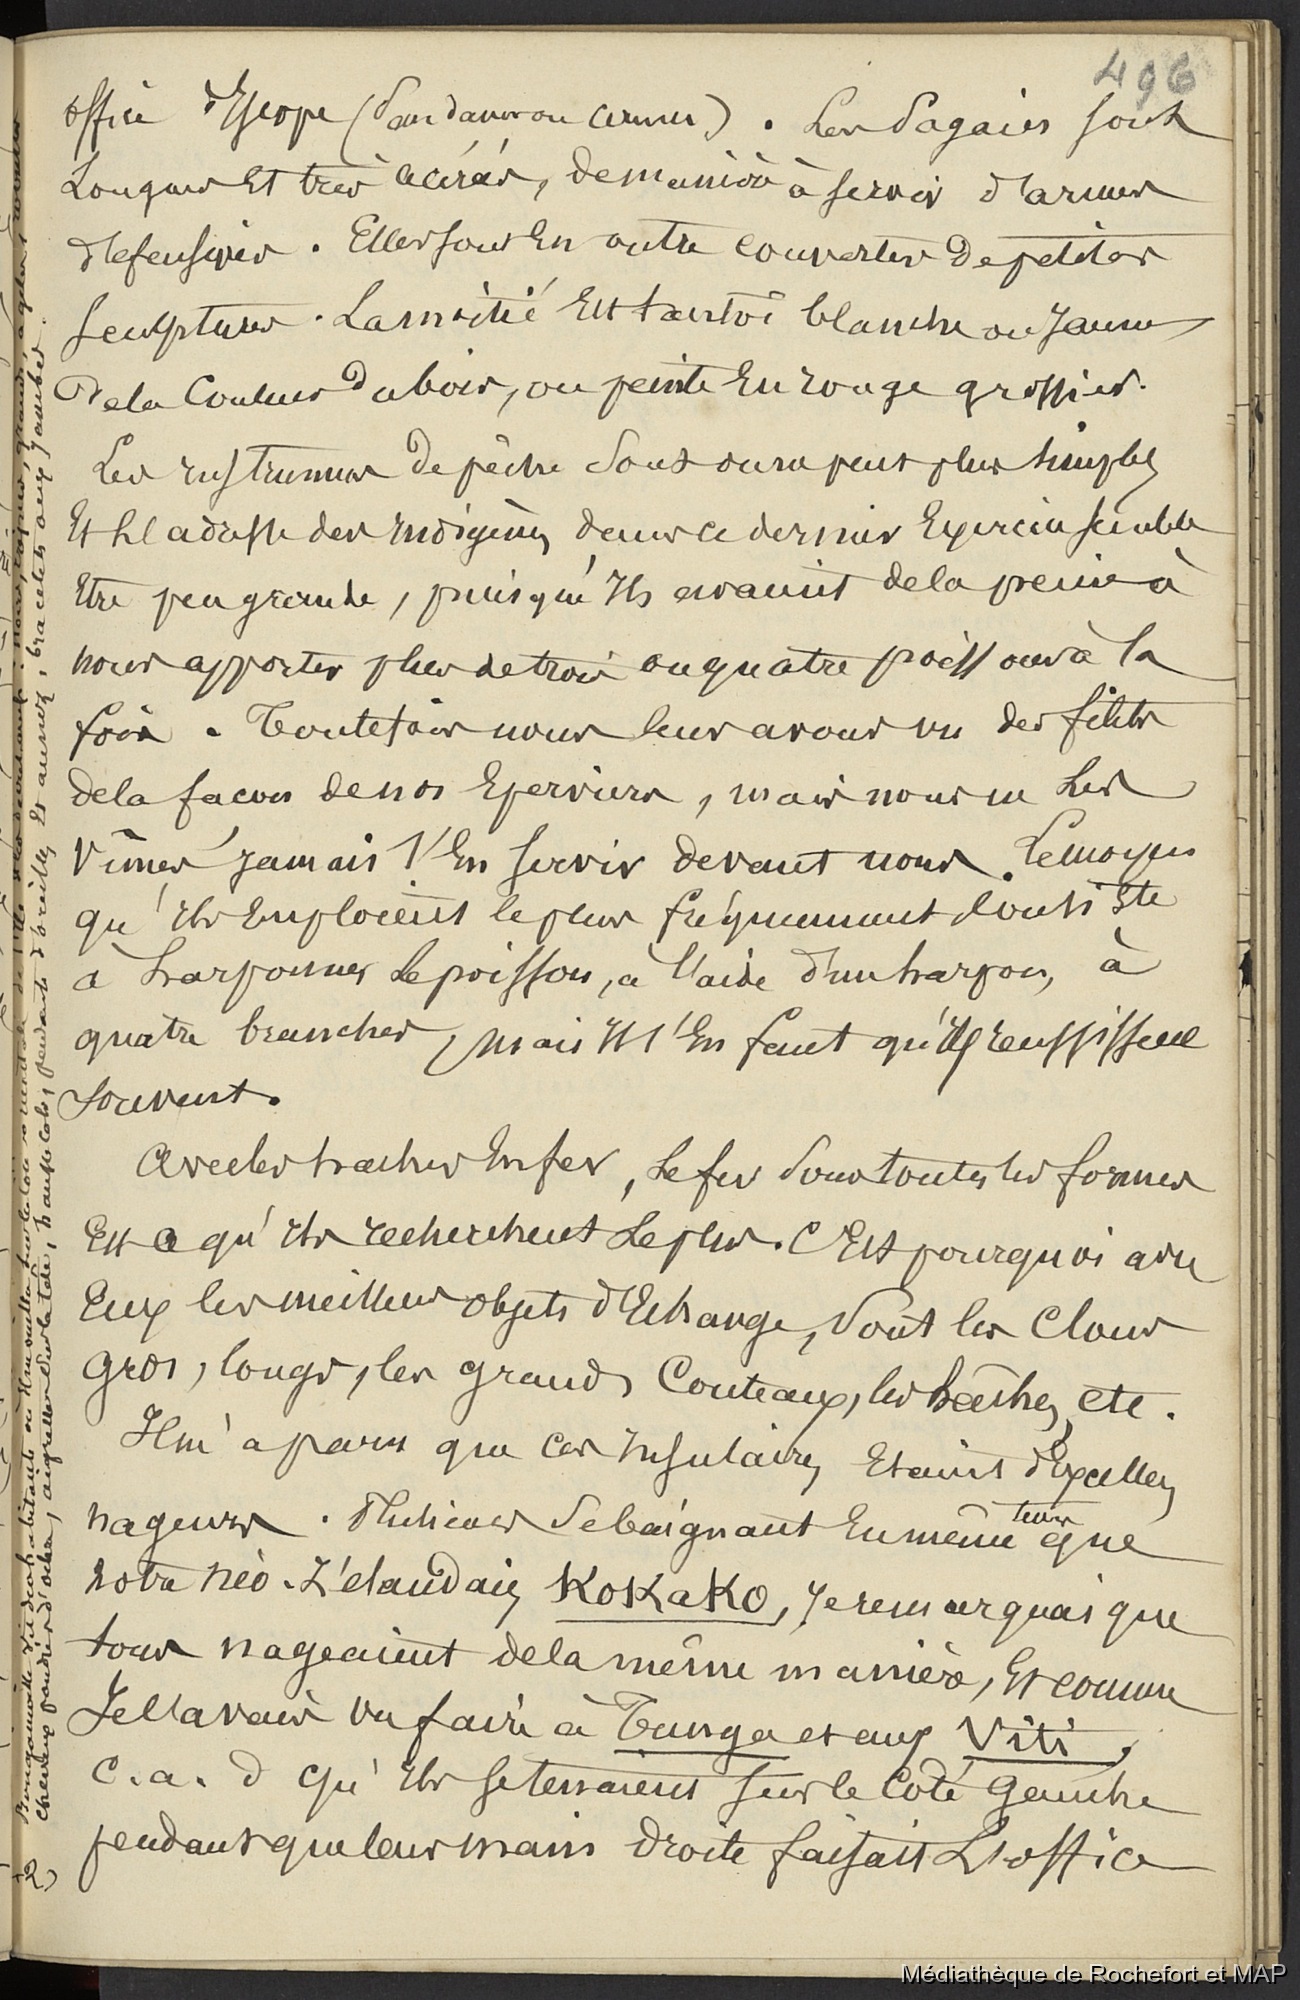 496
office d'Escope (Pandanus ou). Les Pagaies sont
Longues et très acérées, de manière à servir d'armes
deffensives. Elles sont en outre couvertes de petites
sculptures. La moitié est tantôt blanche ou Jaune
de la Couleur du bois, ou peinte En rouge grossier.
Les Instrumens de pêche sont on ne peut plus simples
Et L'adresse des Indigènes dans ce dernier Exercice semble
Etre peu grande, puisqu'Ils avaient de la peine à
nous apporter plus de trois ou quatre poissons à la
fois. Toutefois nous leur avons vu des filets
de la facon de nos Eperviers, mais nous ne Les
Vîmes jamais s'En servir devant nous. Le moyen
qu'Ils Emploient le plus fréquemment consiste
a harponner Le poisson, à l'aide d'un harpon, à
quatre branches, mais Il s'En faut qu'Ils reussissent
souvent.
Avec les haches En fer, Le fer sous toutes les formes
Est ce qu'Ils recherchent Le plus. C'Est pourquoi avec
Eux les meilleurs objets d'Echange, sont les Clous
gros, longs, les grands Couteaux, les haches, etc.
Il m'a paru que ces Insulaires Etaient d'Excellens
nageurs. Plusieurs se baignant En même tems que
notre Néo-Zélandais KoKaKo, Je remarquais que
tous nageaient de la même manière, Et comme
Je l'avais vu faire à Tunga et aux Viti,
C. a. d qu'Ils se tenaient sur le Coté gauche
pendant que leur main droite faisait L'office
2) Bougainville dit des habitants
cheveux poudrés d'ocre, aigrettes sur la tête, hausse cols, pendants d'oreilles Et aunez, bracelets aux jambes.